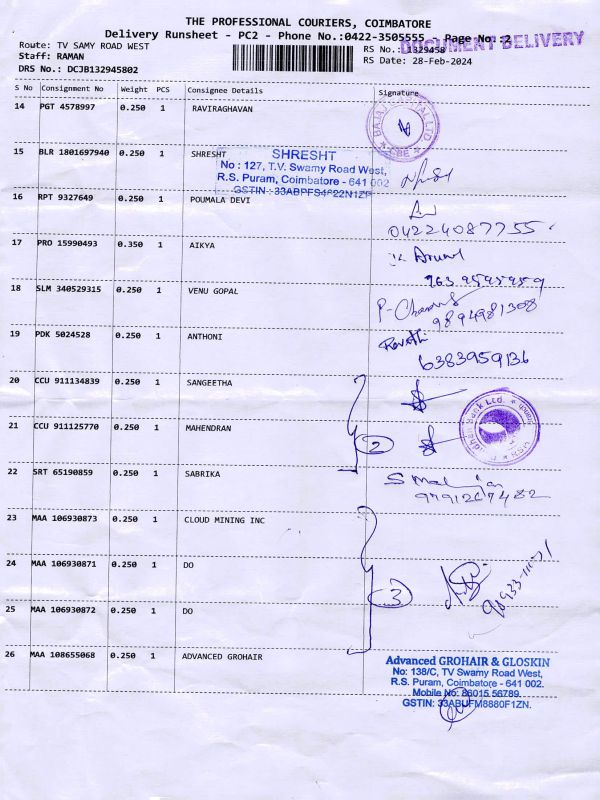 THE PROFESSIONAL COURIERS, COIMBATORE
Delivery Runsheet - PC2 - Phone No.:0422-3505555 - Page No.:2
DOCUMENT DELIVERY
Route: TV SAMY ROAD WEST
RS No.: 1329458
Staff: RAMAN
RS Date: 28-Feb-2024
DRS No.: DCJB132945802
S No Consignment No Weight PCS Consignee Details Signature
14 PGT 4578997 0.250 1 RAVIRAGHAVAN
15 BLR 1801697940 0.250 1 SHRESHT
SHRESHT
No : 127, T.V. Swamy Road West,
R.S. Puram, Coimbatore - 641 002
GSTIN : 33ABPFS4822N1ZP
16 RPT 9327649 0.250 1 POUMALA DEVI
04224087755
17 PRO 15990493 0.350 1 AIKYA
Arunl
963 9595959
18 SLM 340529315 0.250 1 VENU GOPAL
9894981308
19 PDK 5024528 0.250 1 ANTHONI
Revathi
6383959136
20 CCU 911134839 0.250 1 SANGEETHA
21 CCU 911125770 0.250 1 MAHENDRAN
2
Bank Ltd.
22 SRT 65190859 0.250 1 SABRIKA
9791267482
23 MAA 106930873 0.250 1 CLOUD MINING INC
24 MAA 106930871 0.250 1 DO
3
25 MAA 106930872 0.250 1 DO
26 MAA 108655068 0.250 1 ADVANCED GROHAIR
Advanced GROHAIR & GLOSKIN
No: 138/C, TV Swamy Road West,
R.S. Puram, Coimbatore - 641 002.
Mobile No: 86015 56789
GSTIN: 33ABUFM8880F1ZN.